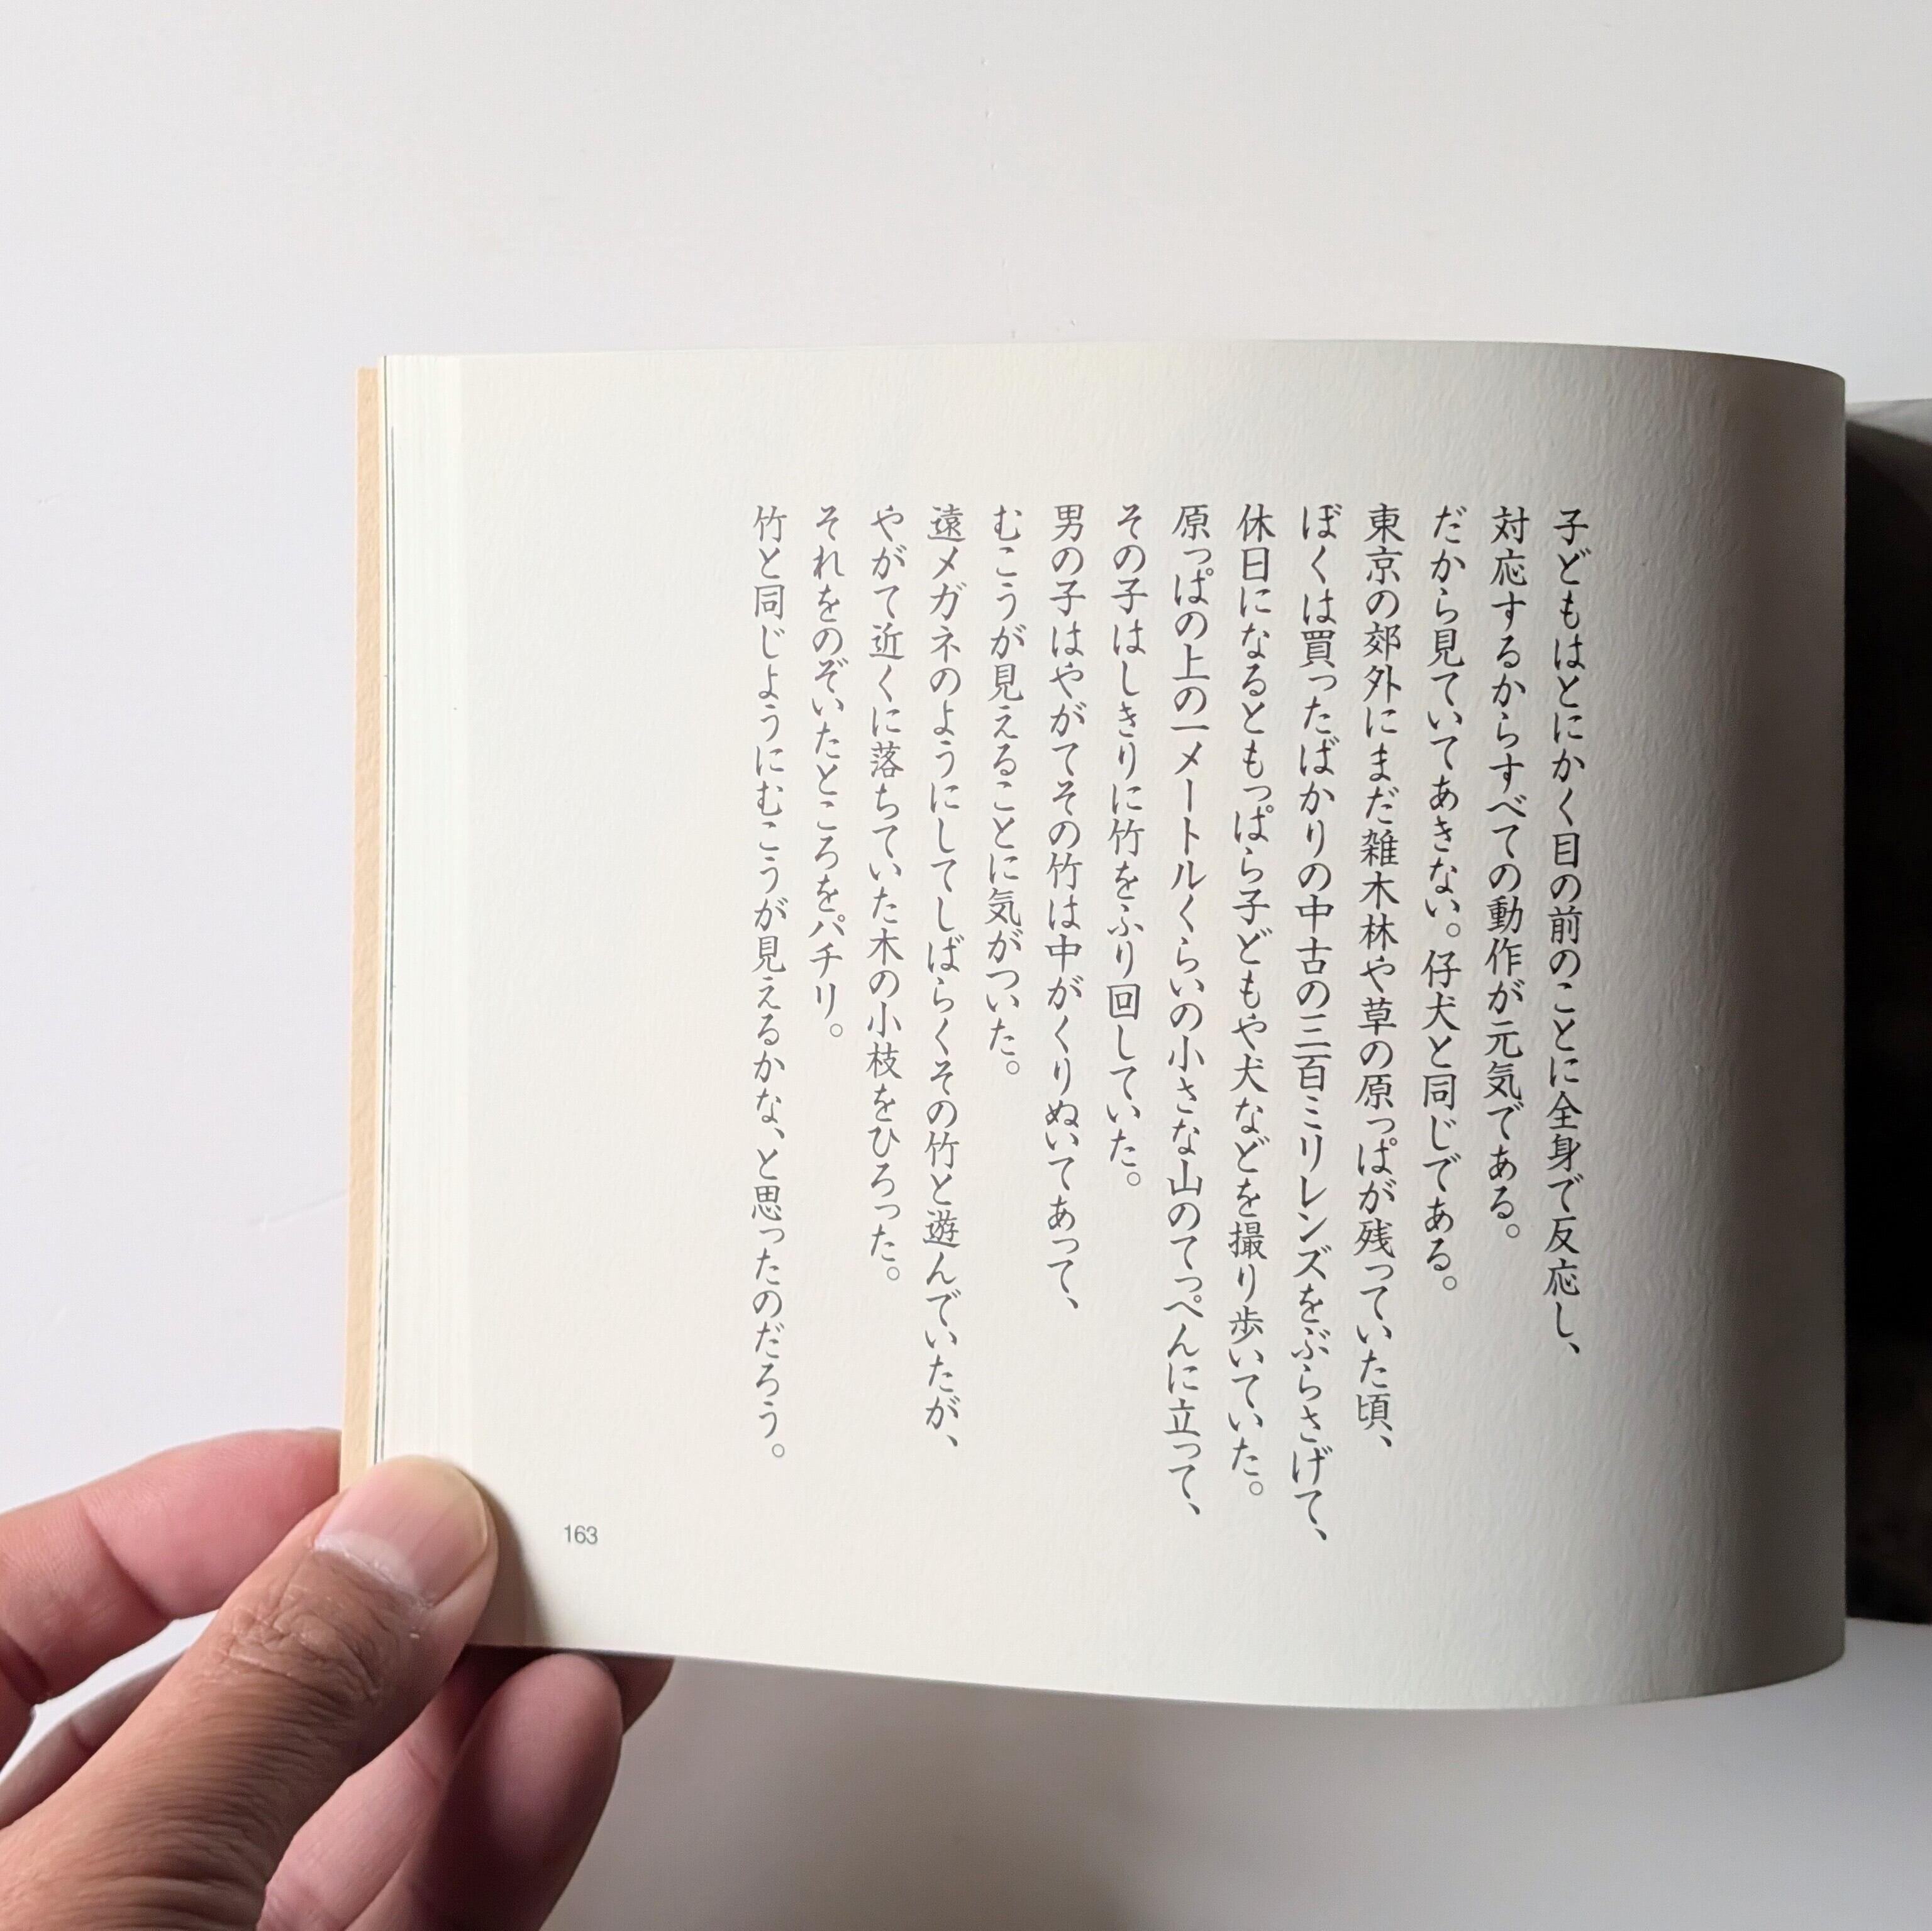 子どもはとにかく目の前のことに全身で反応し、
対応するからすべての動作が元気である。
だから見ていてあきない。仔犬と同じである。
東京の郊外にまだ雑木林や草の原っぱが残っていた頃、
ぼくは買ったばかりの中古の三百ミリレンズをぶらさげて、
休日になるともっぱら子どもや犬などを撮り歩いていた。
原っぱの上の一メートルくらいの小さな山のてっぺんに立って、
その子はしきりに竹をふり回していた。
男の子はやがてその竹は中がくりぬいてあって、
むこうが見えることに気がついた。
遠メガネのようにしてしばらくその竹と遊んでいたが、
やがて近くに落ちていた木の小枝をひろった。
それをのぞいたところをパチリ。
竹と同じようにむこうが見えるかな、と思ったのだろう。
163